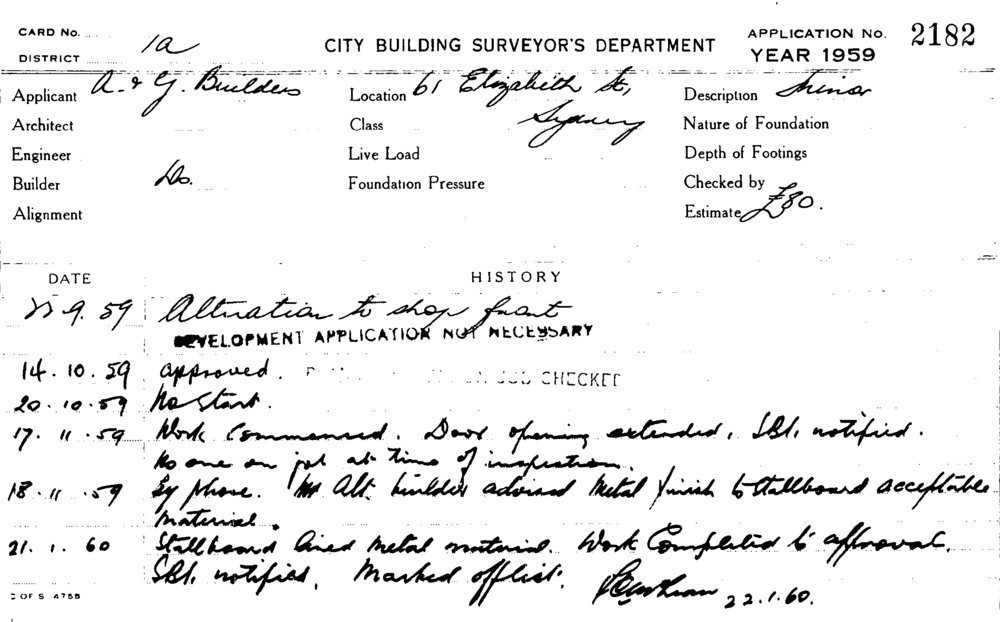 CARD No.
DISTRICT 1a
CITY BUILDING SURVEYOR'S DEPARTMENT
APPLICATION No. 2182
YEAR 1959
Applicant A. & G. Builders
Location 61 Elizabeth St,
Description Minor
Architect
Class Sydney
Nature of Foundation
Engineer
Live Load
Depth of Footings
Builder Do.
Foundation Pressure
Checked by
Alignment
Estimate £80.
DATE HISTORY
9. 59 Alteration to shop front
DEVELOPMENT APPLICATION NOT NECESSARY
14. 10. 59 approved. JOB CHECKED
20. 10. 59 No Start.
17. 11. 59 Work Commenced. Door opening extended, SBI. notified.
No one on job at time of inspection.
18. 11. 59 By phone. Alt. builder advised Metal finish to Stallboard acceptable
material.
21. 1. 60 Stallboard lined metal material. Work Completed to approval.
SBI. notified. Marked off list.
22.1.60.
C OF S 475B